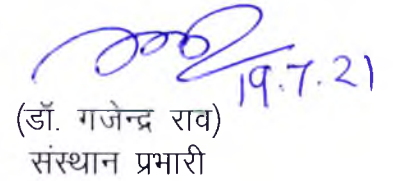 19.7.21
(डॉ. गजेन्द्र राव)
संस्थान प्रभारी